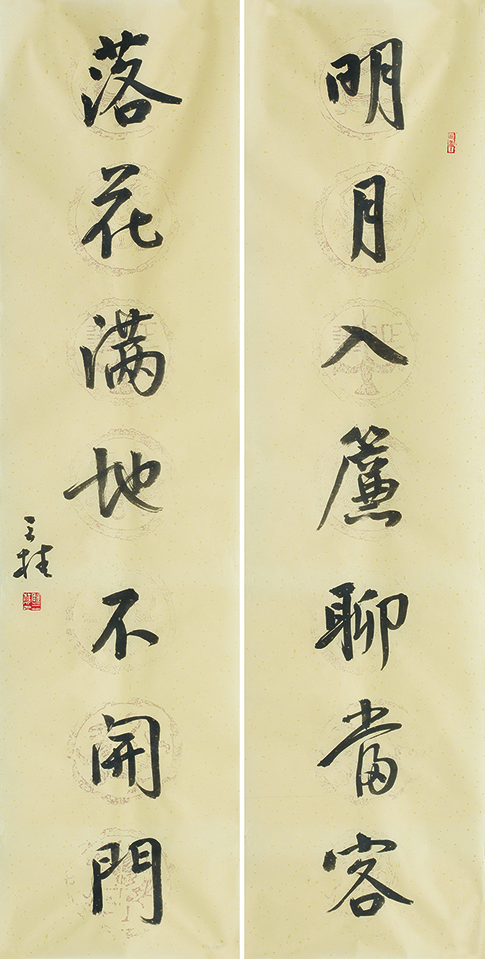 明月入簾聊當客
落花满地不開門